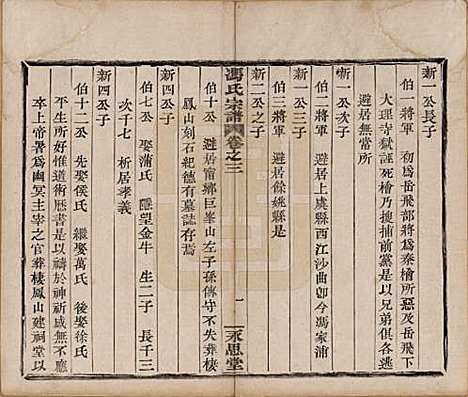 新一公長子
伯一將軍 初爲岳飛部將爲秦檜所惡及岳飛下
大理寺獄誣死檜乃搜捕前黨是以兄弟俱各逃
避居無常所
新一公次子
伯二將軍 避居上虞縣西江沙曲卽今馮家浦
新一公三子
伯三將軍 避居餘姚縣是
新二公之子
伯十公 避居甯鄉巨峯山左子孫傳守不失葬棲
鳳山刻石紀德有墓誌存焉
馮氏宗譜 卷之三
一
永思堂
新四公子
伯七公 娶蒲氏 隱望金牛 生二子 長千三
次千七 析居孝義
新四公子
伯十二公 先娶侯氏 繼娶萬氏 後娶徐氏
平生所好惟道術曆書是以禱於神祈咸無不應
卒上帝署爲幽冥主宰之官葬棲鳳山建祠堂以